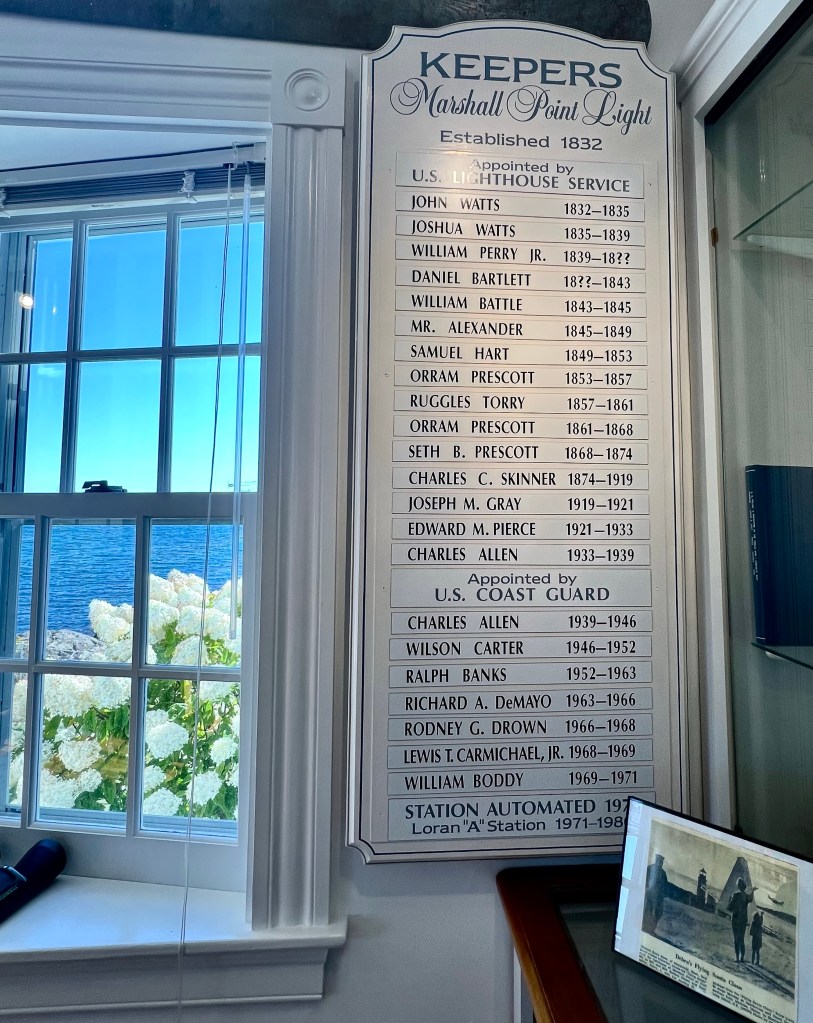 KEEPERS
Marshall Point Light
Established 1832
Appointed by
U.S. LIGHTHOUSE SERVICE
JOHN WATTS 1832–1835
JOSHUA WATTS 1835–1839
WILLIAM PERRY JR. 1839–18??
DANIEL BARTLETT 18??–1843
WILLIAM BATTLE 1843–1845
MR. ALEXANDER 1845–1849
SAMUEL HART 1849–1853
ORRAM PRESCOTT 1853–1857
RUGGLES TORRY 1857–1861
ORRAM PRESCOTT 1861–1868
SETH B. PRESCOTT 1868–1874
CHARLES C. SKINNER 1874–1919
JOSEPH M. GRAY 1919–1921
EDWARD M. PIERCE 1921–1933
CHARLES ALLEN 1933–1939
Appointed by
U.S. COAST GUARD
CHARLES ALLEN 1939–1946
WILSON CARTER 1946–1952
RALPH BANKS 1952–1963
RICHARD A. DeMAYO 1963–1966
RODNEY G. DROWN 1966–1968
LEWIS T. CARMICHAEL, JR. 1968–1969
WILLIAM BODDY 1969–1971
STATION AUTOMATED
Loran "A" Station 1971–
Debra's Flying Santa Claus